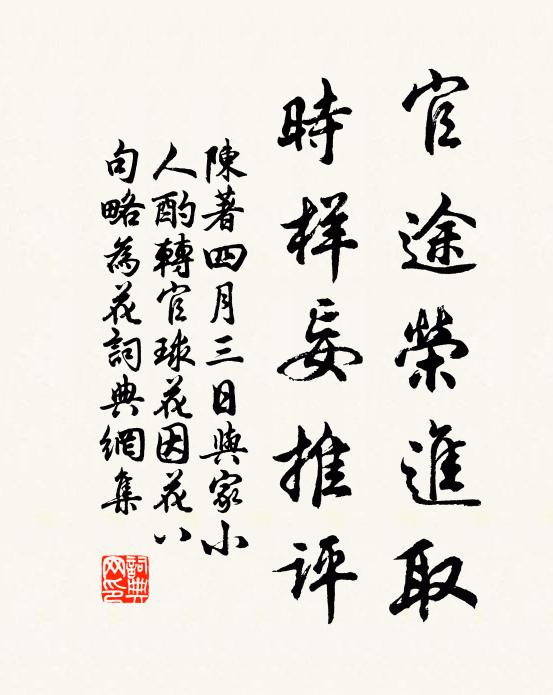 官途榮進取
時样妄推评
陳著四月三日與家小
人酌轉官球花因花八
句略為花詞典網集
詞典网印